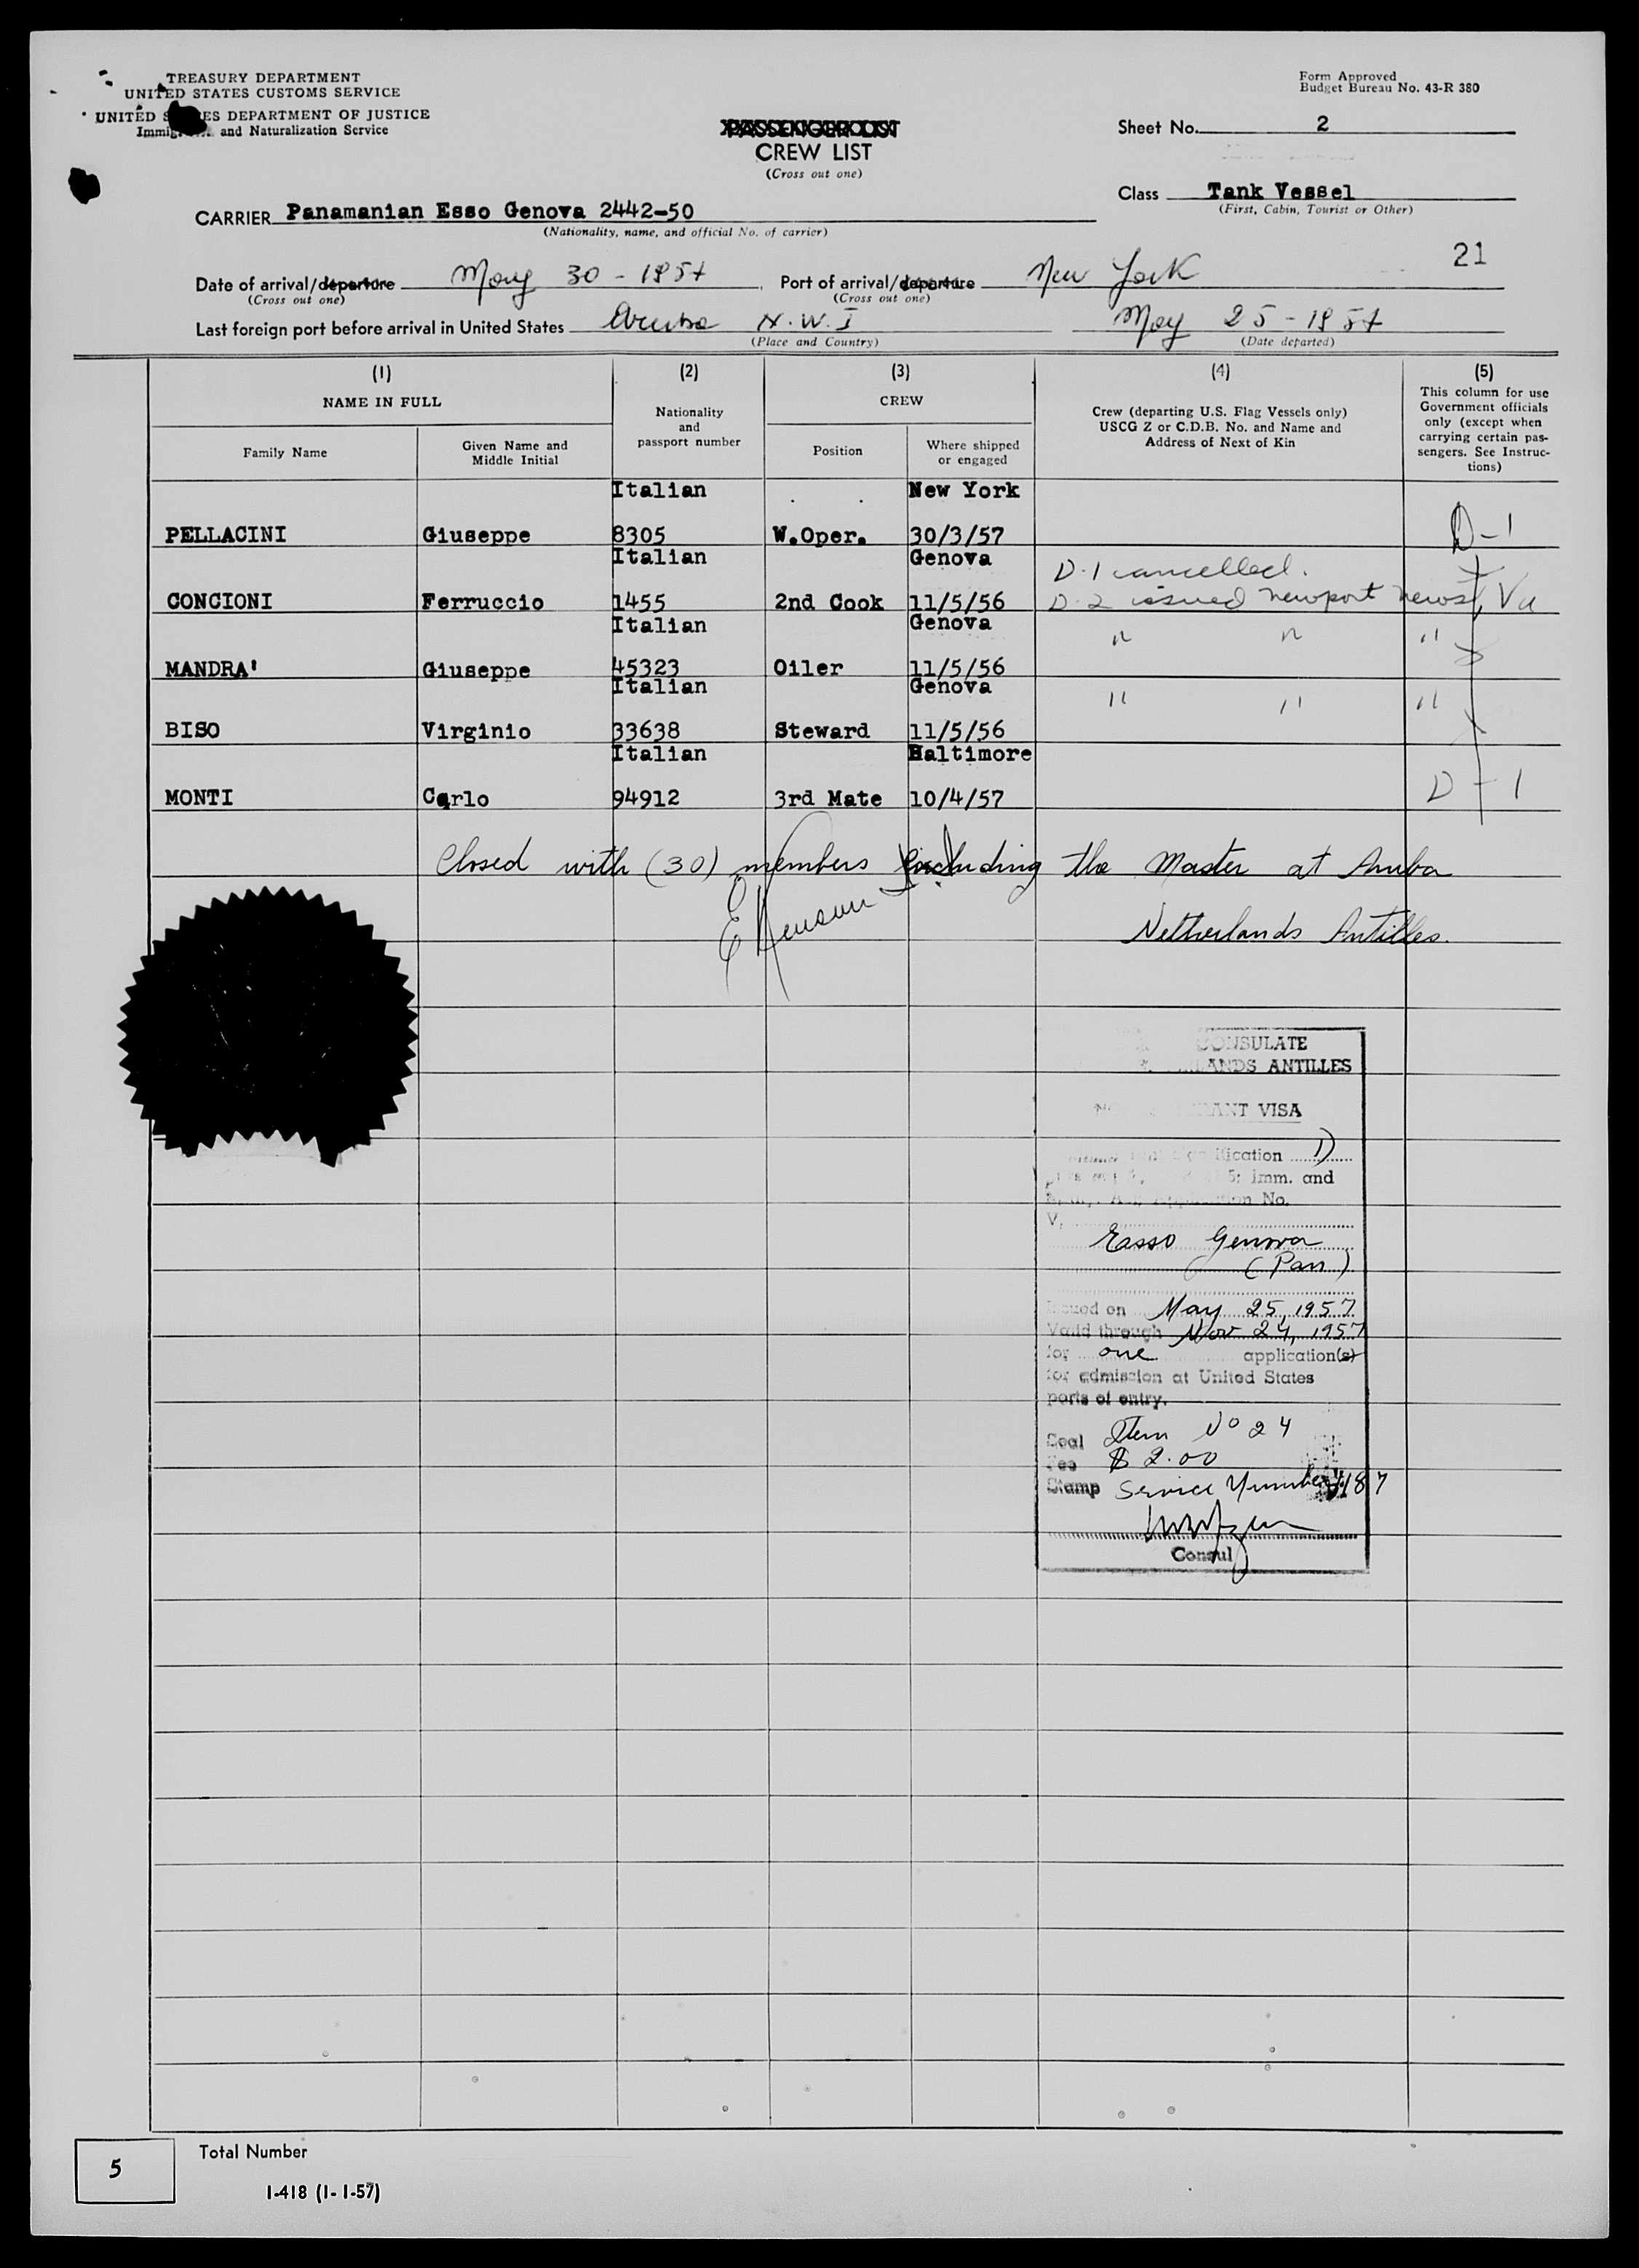 TREASURY DEPARTMENT
UNITED STATES CUSTOMS SERVICE
UNITED ES DEPARTMENT OF JUSTICE
and Naturalization Service
Form Approved
Budget Bureau No. 43-R 380
PASSENGER LIST
CREW LIST
(Cross out one)
Sheet No. 2
Class Tank Vessel
(First, Cabin, Tourist or Other)
CARRIER Panamanian Esso Genova 2442-50
(Nationality, name, and official No. of carrier)
21
Date of arrival/departure May 30 - 1957 Port of arrival/departure New York
(Cross out one) (Cross out one)
Last foreign port before arrival in United States Aruba N.W.I May 25 - 1957
(Place and Country) (Date departed)
(1) (2) (3) (4) (5)
NAME IN FULL
Nationality and passport number
CREW
Crew (departing U.S. Flag Vessels only)
USCG Z or C.D.B. No. and Name and
Address of Next of Kin
This column for use
Government officials
only (except when
carrying certain pas-
sengers. See Instruc-
tions)
Family Name
Given Name and
Middle Initial
Position
Where shipped
or engaged
Italian New York
PELLACINI Giuseppe 8305 W.Oper. 30/3/57 D-1
Italian Genova D-1 cancelled.
CONCIONI Ferruccio 1455 2nd Cook 11/5/56 D-2 issued Newport News, Va
Italian Genova " " "
MANDRA' Giuseppe 45323 Oiler 11/5/56
Italian Genova " " "
BISO Virginio 33638 Steward 11/5/56
Italian Baltimore
MONTI Carlo 94912 3rd Mate 10/4/57 D-1
Closed with (30) members including the Master at Aruba
Netherlands Antilles.
CONSULATE
LANDS ANTILLES
VISA
1)
Imm. and
No.
V.
Esso Genova
(Pan)
Issued on May 25, 1957
Valid through Nov 24, 1957
for one application(s)
for admission at United States
ports of entry.
Seal Item No 24
Fee $ 2.00
Stamp Service Number
Consul
5
Total Number
I-418 (1-1-57)